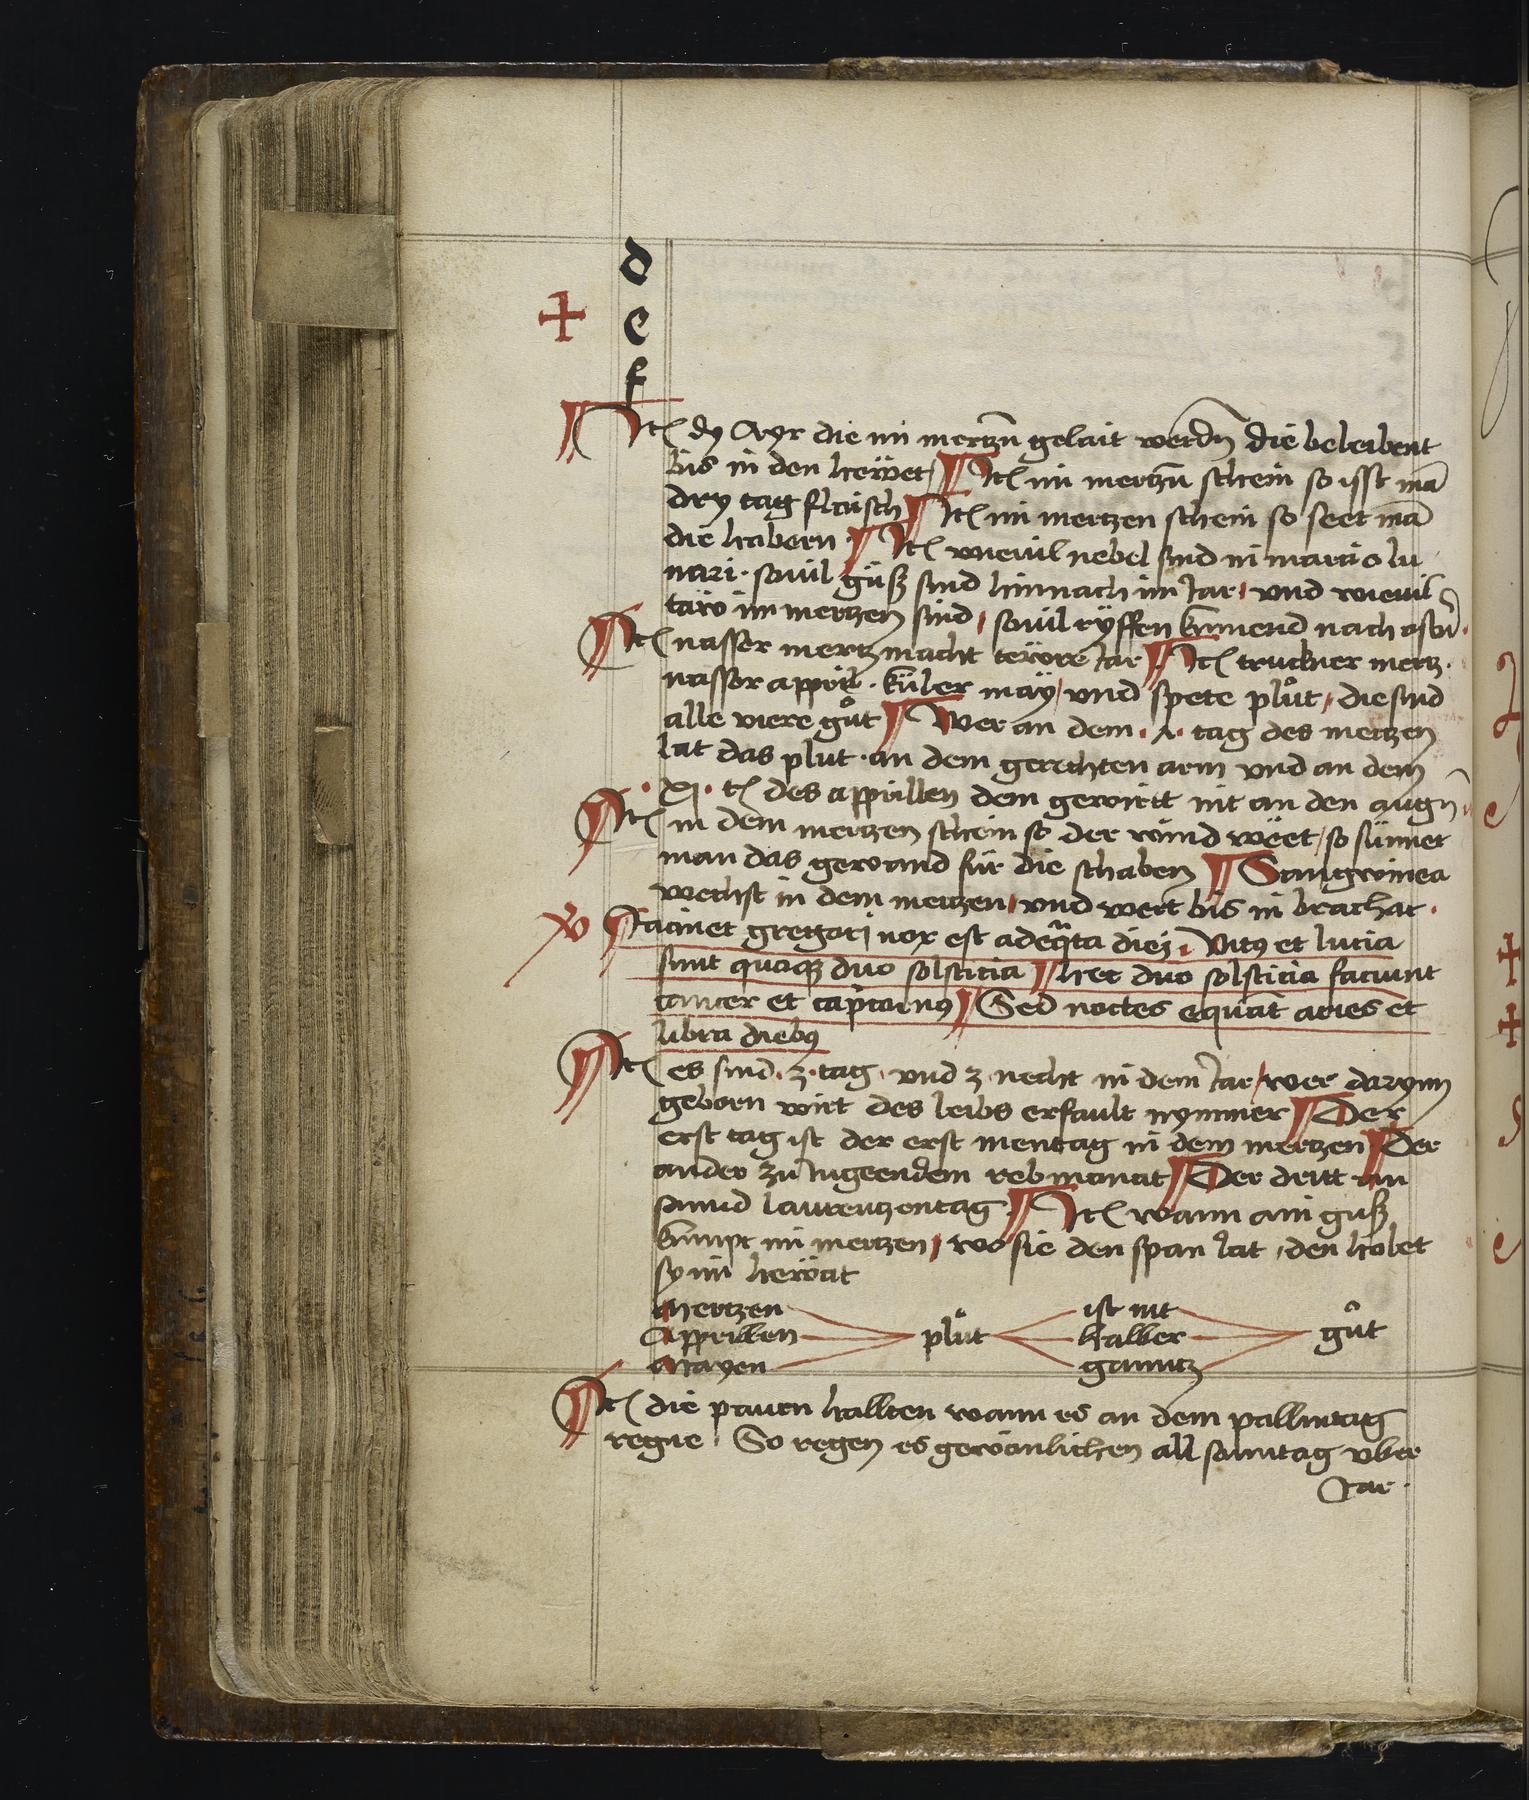 d
e
f
Itē dy Ayr die im mertzn̄ gelait werdn̄ die beleibent
bis in den heẅet / Itē im mertzn̄ schein so isst mā
dry tag flaisch Itē im mertzen schein so seet mā
die habern Itē wieuil nebel sind in marcio lu
nari · souil güß sind hinnach im Jar / vnd wieuil
taw im mertzen sind / souil ryffen kumend nach ostn̄ ·
Itē nasser mertz macht teẅre Jar Itē truckner mertz ·
nasser appril · küler may / vnd spete plůt / die sind
alle viere gůt Wer an dem · ʌ · tag des mertzen
lat das plut · an dem gerechten arm vnd an dem
· xj · tē des apprillen dem gewirtt nit an den augn̄
Itē in dem mertzen schein so der wind wëet / so sünnet
man das gewand für die schaben Sangwinea
wechst in dem mertzen / vnd wert bis in brachat ·
Facinet gregorj nox est adeqᵃta diej · Vitꝯ et lucia
sunt quoqꝫ duo solsticia hec duo solsticia faciunt
cancer et capͥcornꝯ Sed noctes equāt aries et
libra diebꝯ
Itē es sind · 3 · tag · vnd 3 necht in dem Jar / wer darynn
geborn wirt des leibs erfault nymmer Der
erst tag ist der erst mentag in dem mertzen Der
ander zu Ingeendem rebmanat Der dritt am
sannd laurentzentag Itē wann ain guß
kumpt im mertzen / wo sie den span lat / den holet
sy im heẅat
Mertzen ist nit
Apprillen plůt halber gůt
Mayen ganntz
Itē die pauren hallten wann es an dem pallmtag
regne · So regen es gewonlichen all sonntag vber
Jar ·